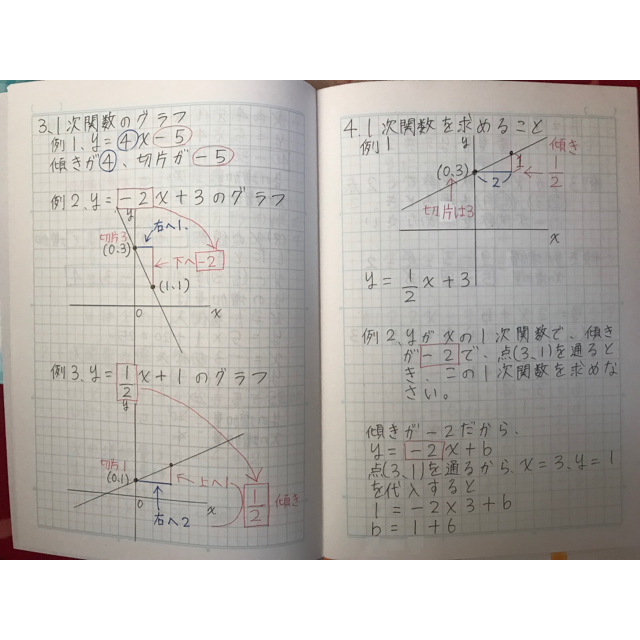 3、1次関数のグラフ
例1、y=4x-5
傾きが4、切片が-5
例2、y=-2x+3のグラフ
y
切片3
右へ1.
(0.3)
下へ-2
(1.1)
0
x
例3、y=1/2x+1のグラフ
y
切片1
(0.1)
上へ1
1/2
傾き
0
x
右へ2
4.1次関数を求めること
例1
y
傾き
(0.3)
1
2
1/2
切片は3
x
y=1/2x+3
例2、yがxの1次関数で、傾き
が-2で、点(3、1)を通ると
き、この1次関数を求めな
さい。
傾きが-2だから、
y=-2x+b
点(3、1)を通るから、x=3、y=1
を代入すると
1=-2×3+b
b=1+6